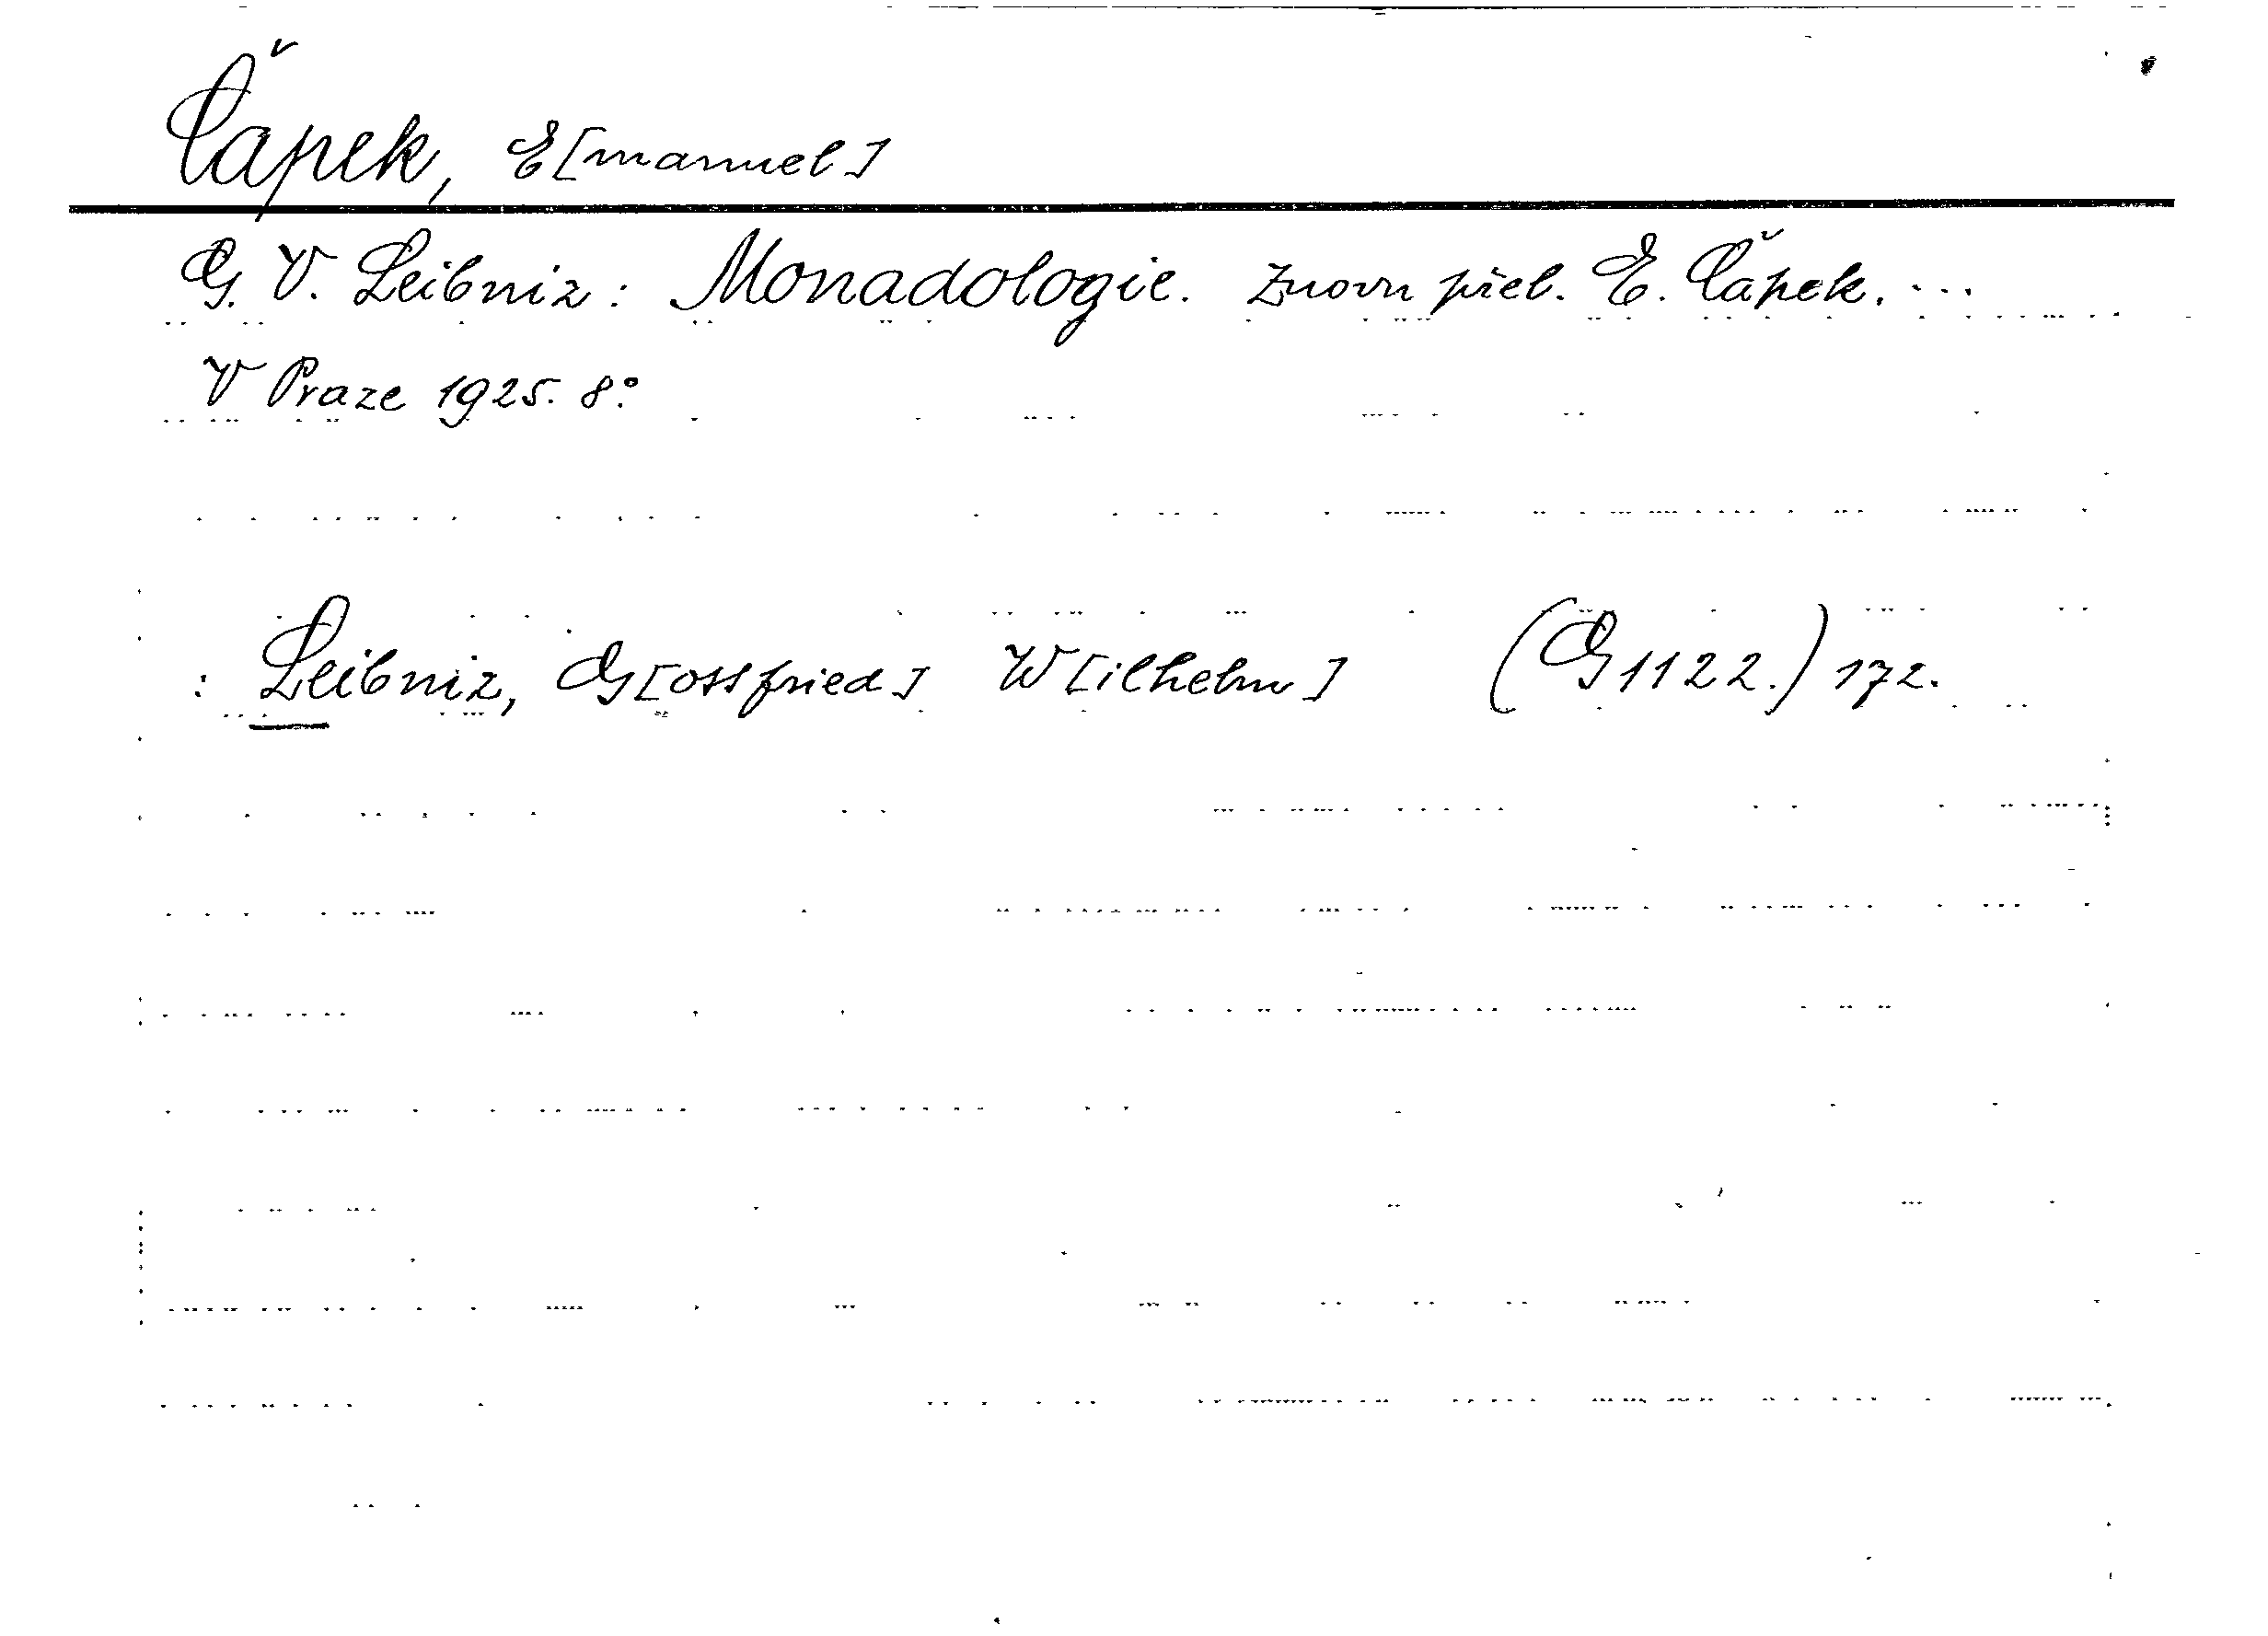 Čápek, E[manuel]
G. V. Leibniz: Monadologie. Znovu přel. E. Čápek. ...
V Praze 1925. 8°.
: Leibniz, G[ottfried] W[ilhelm] (G 1122.) 172.